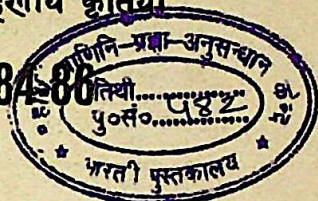 कृतियाँ
84-86
पाणिनि-प्रज्ञा-अनुसन्धान
तिथी..............
पु०सं० ५४२
भारती पुस्तकालय